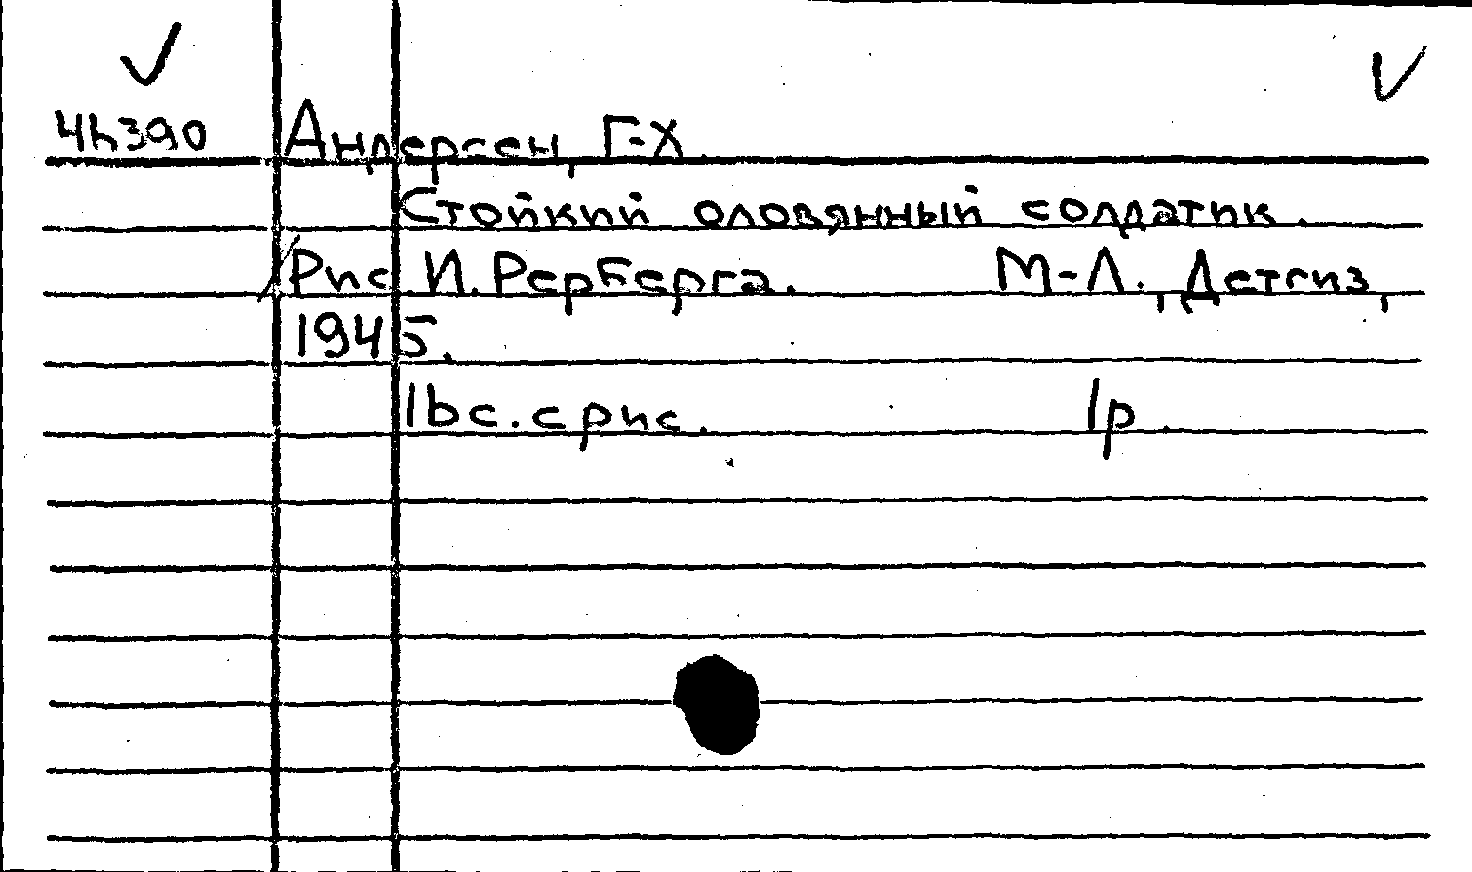 4h390 Андерсен, Г-Х.
Стойкий оловянный солдатик.
Рис. И. Рерберга. М-Л., Детгиз,
1945.
16с. с рис. 1р.